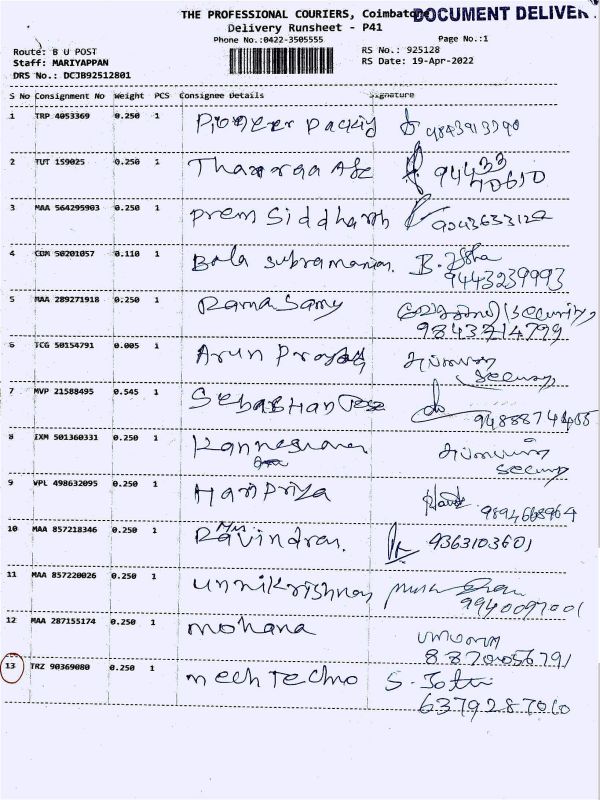 THE PROFESSIONAL COURIERS, Coimbatore
DOCUMENT DELIVER
Delivery Runsheet - P41
Phone No.:0422-3505555
Page No.:1
Route: B U POST
RS No.: 925128
Staff: MARIYAPPAN
RS Date: 19-Apr-2022
DRS No.: DCJB92512801
S No Consignment No Weight PCS Consignee Details Signature
1 TRP 4053369 0.250 1 Pioneer Packig
2 TUT 159025 0.250 1 94433
40610
3 MAA 564295903 0.250 1 Prem Siddharth
4 CBM 50201057 0.110 1 Bala subramanian.
9443239993
5 MAA 289271918 0.250 1 Rama Samy (security)
9843214799
6 TCG 50154791 0.005 1 Arun
security
7 MVP 21588495 0.545 1 Sebastian
8 IXM 501360331 0.250 1
security
9 VPL 498632095 0.250 1 Hari Priya
9894668964
10 MAA 857218346 0.250 1 Ravindran. 9363103601
11 MAA 857220026 0.250 1 Unnikrishnan
9940097001
12 MAA 287155174 0.250 1 mohana
8870056791
13 TRZ 90369080 0.250 1 mech Techno
6379287010